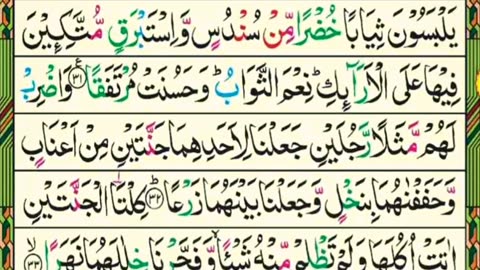 يَلْبَسُوْنَ ثِيَابًا خُضْرًا مِّنْ سُنْدُسٍ وَّاِسْتَبْرَقٍ مُّتَّكِـِٕيْنَ
فِيْهَا عَلَى الْاَرَآئِكِ ؕ نِعْمَ الثَّوَابُ ؕ وَ حَسُنَتْ مُرْتَفَقًا ﴿۳۱﴾ وَاضْرِبْ
لَهُمْ مَّثَلًا رَّجُلَيْنِ جَعَلْنَا لِاَحَدِهِمَا جَنَّتَيْنِ مِنْ اَعْنَابٍ
وَّ حَفَفْنٰهُمَا بِنَخْلٍ وَّجَعَلْنَا بَيْنَهُمَا زَرْعًا ؕ ﴿۳۲﴾ كِلْتَا الْجَنَّتَيْنِ
اٰتَتْ اُكُلَهَا وَلَمْ تَظْلِمْ مِّنْهُ شَيْـًٔا ۙ وَّ فَجَّرْنَا خِلٰلَهُمَا نَهَرًا ۙ ﴿۳۳﴾